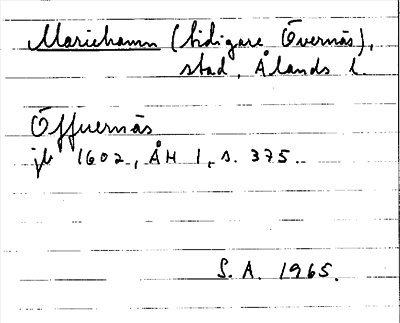 Mariehamn (tidigare Övernäs),
stad, Ålands l.
Öffuernäs
jb 1602, ÅH 1, s. 375.
S. A. 1965.